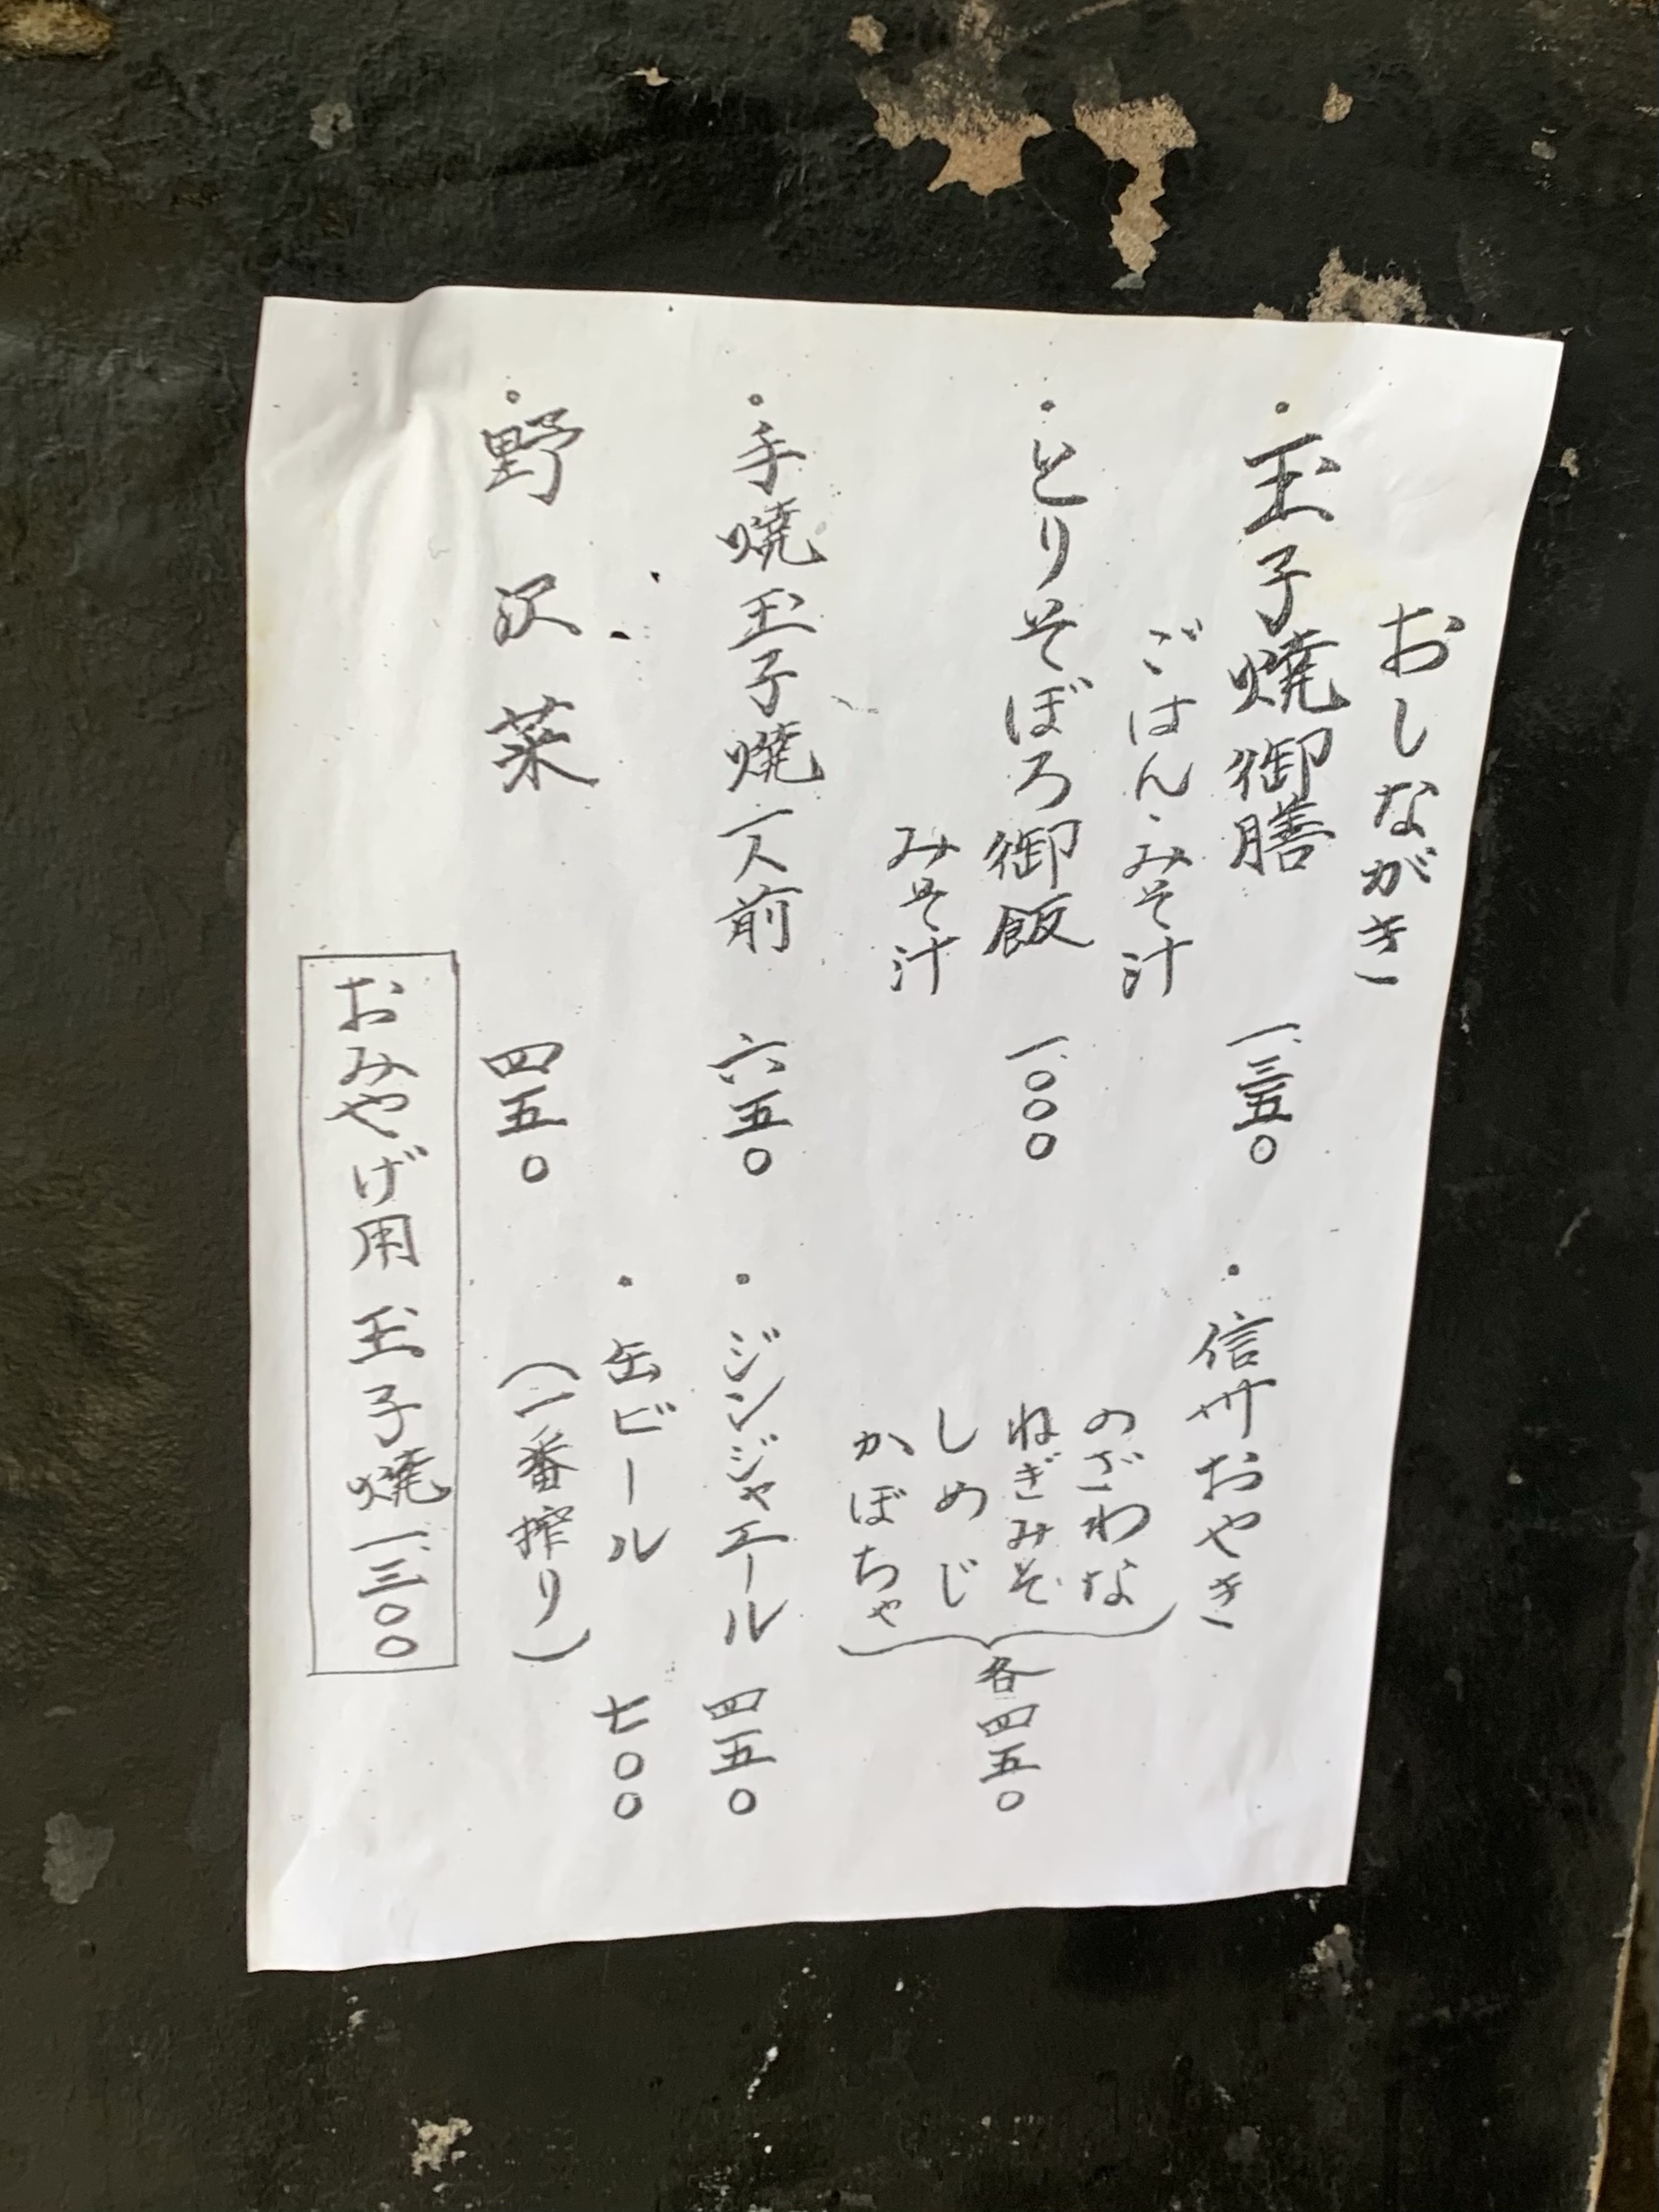 おしながき
・玉子焼御膳 一、三五〇
ごはん・みそ汁
・とりそぼろ御飯 一、〇〇〇
みそ汁
・手焼玉子焼一人前 六五〇
・野沢菜 四五〇
・信州おやき
のざわな
ねぎみそ
しめじ
かぼちゃ
各四五〇
・ジンジャエール 四五〇
・缶ビール 七〇〇
(一番搾り)
おみやげ用 玉子焼 一、三〇〇